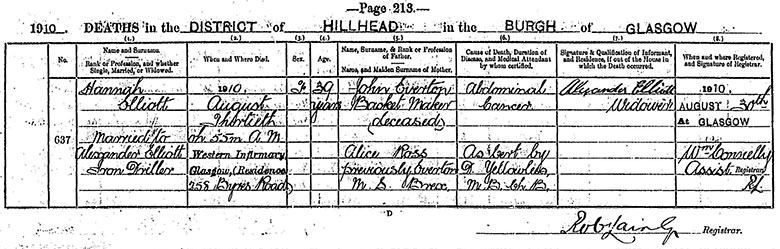 —Page 213.—
1910. DEATHS in the DISTRICT of HILLHEAD in the BURGH of GLASGOW
(1.) (2.) (3.) (4.) (5.) (6.) (7.) (8.)
No. Name and Surname. Rank or Profession, and whether Single, Married, or Widowed. When and Where Died. Sex. Age. Name, Surname, & Rank or Profession of Father. Name, and Maiden Surname of Mother. Cause of Death, Duration of Disease, and Medical Attendant by whom certified. Signature & Qualification of Informant, and Residence, if out of the House in which the Death occurred. When and where Registered, and Signature of Registrar.
Hannah 1910, F 39 John Everton Abdominal Alexander Elliott 1910,
Elliott August years Basket Maker Cancer Widower AUGUST 31st
Thirtieth (deceased) At GLASGOW
637
Married to 0h 55m A.M.
Alexander Elliott Western Infirmary Alice Ross As Cert by Wm Connelly
Iron Driller Glasgow, (Residence previously Everton D. Yellowlees Assist. Registrar
258 Byres Road) M.S. M.B. Ch.B.
D
Registrar.